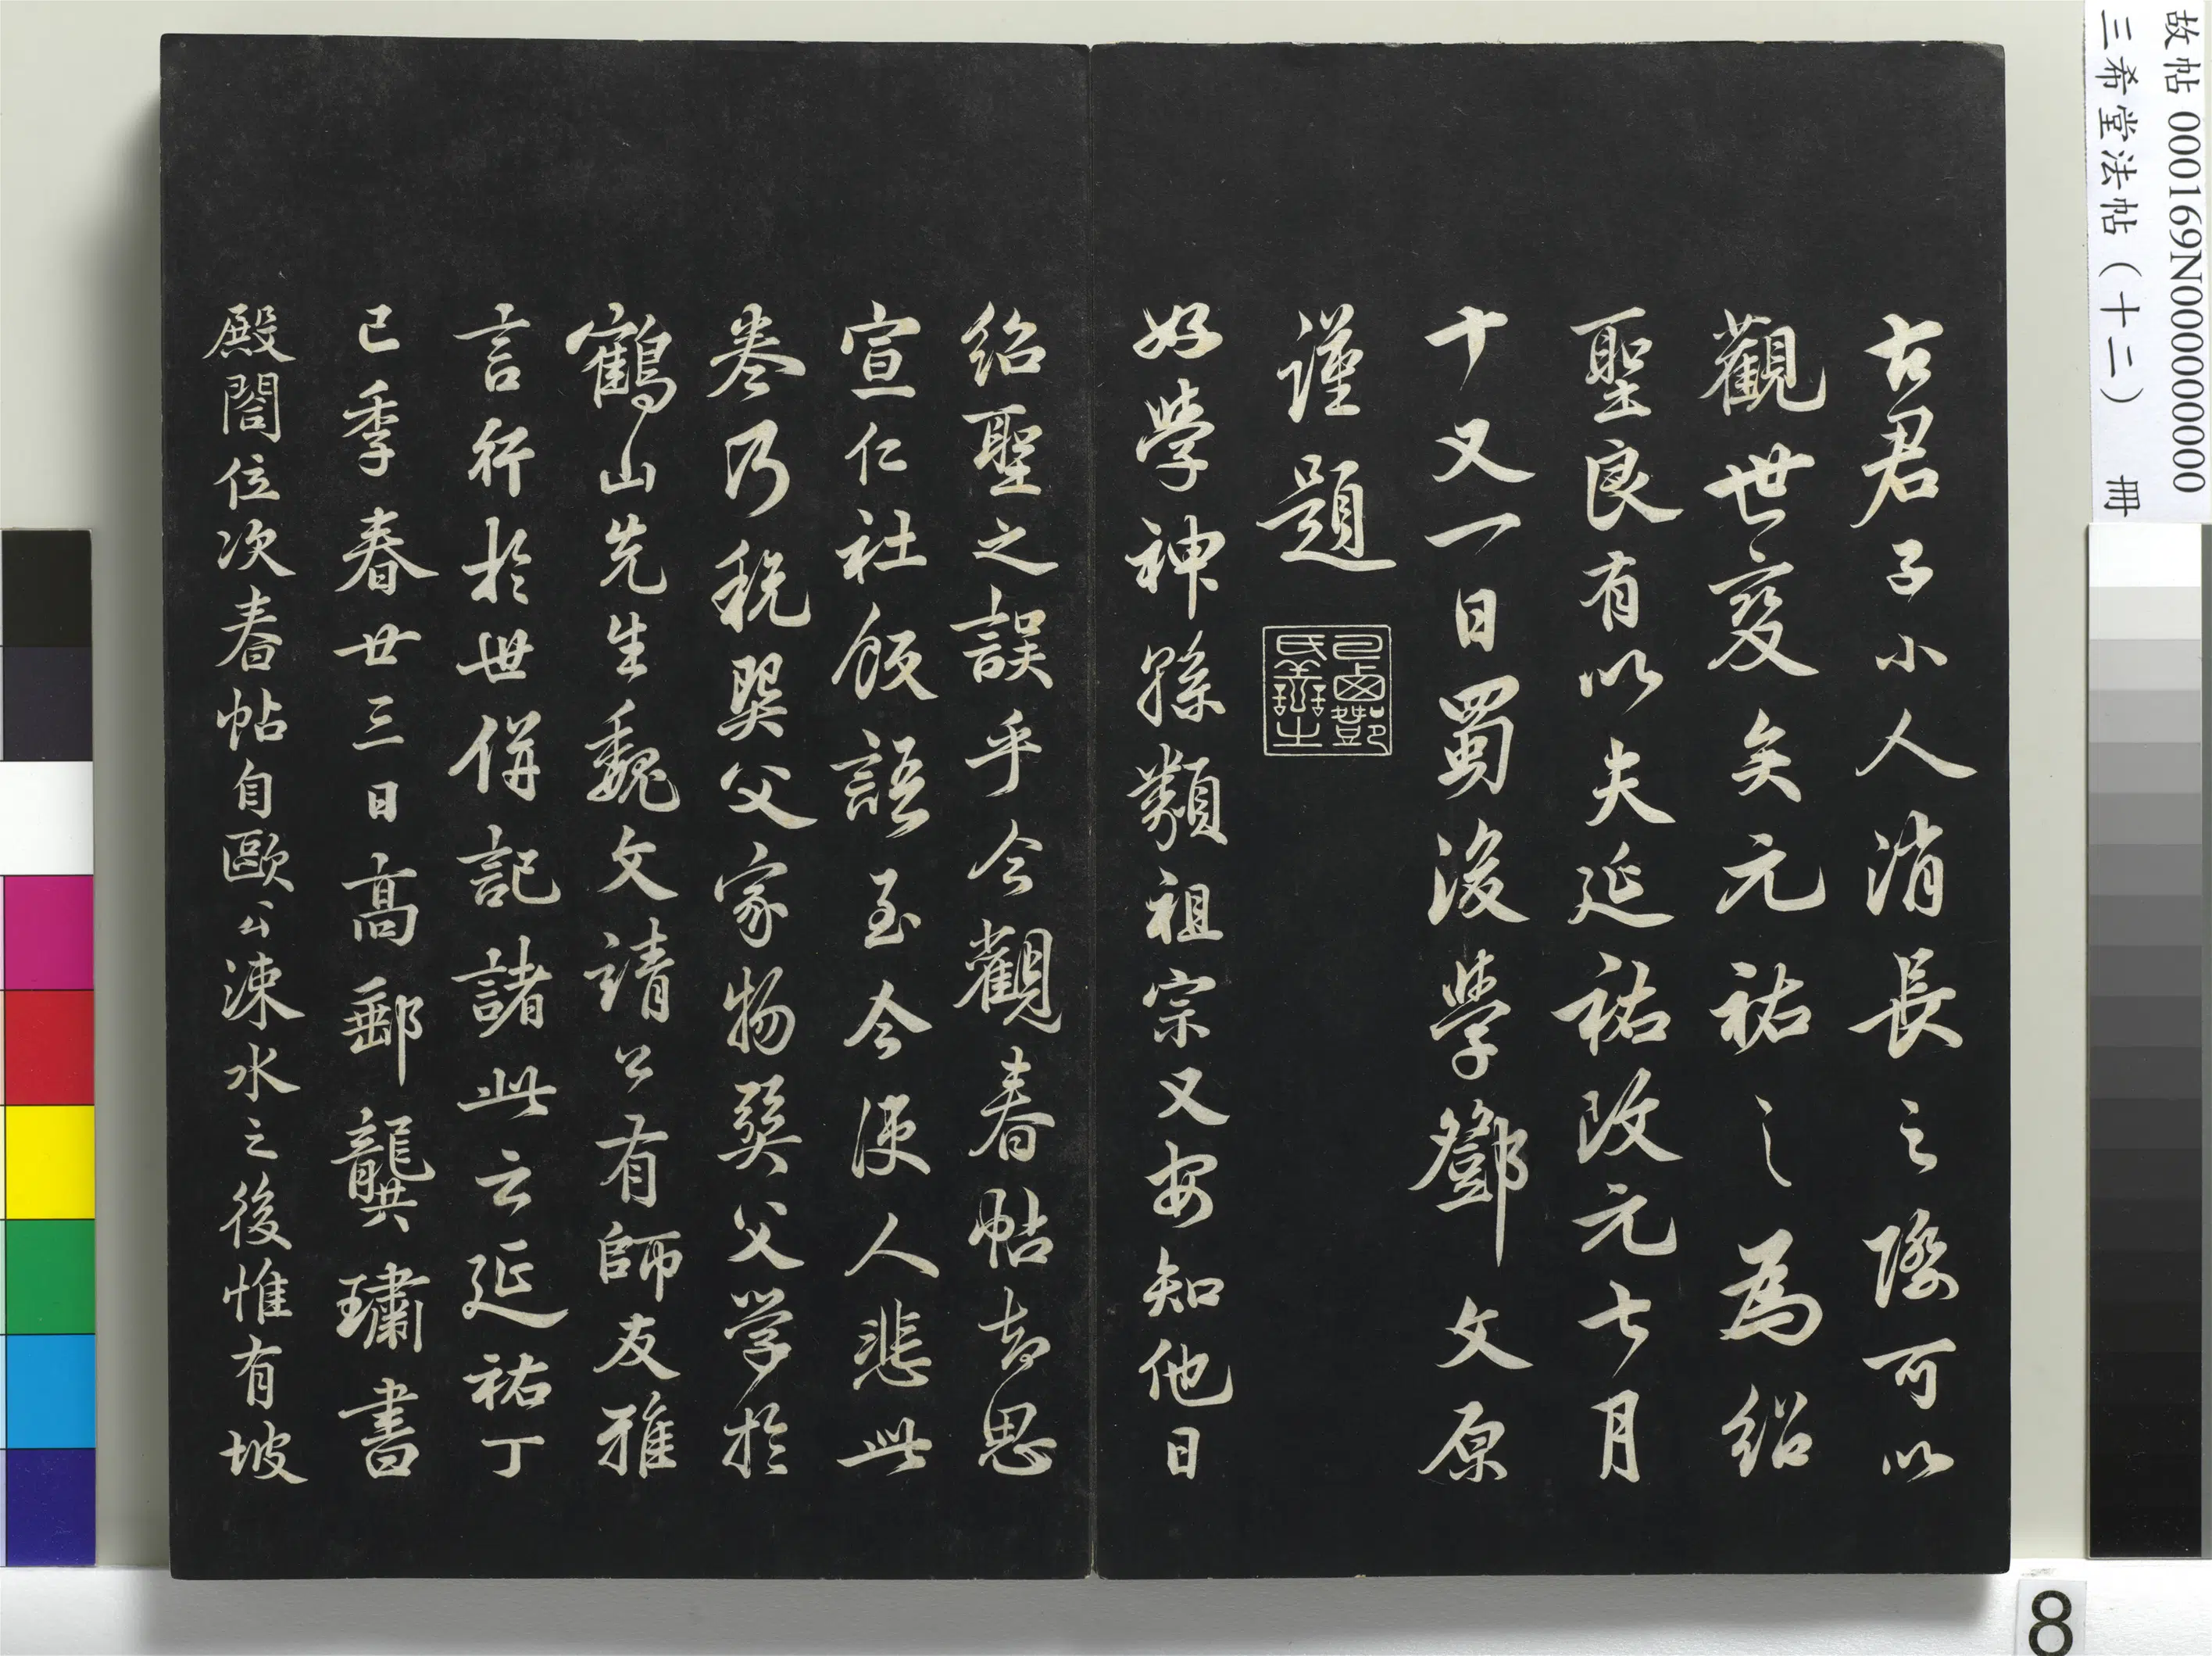 古君子小人消長之際可以
觀世變矣元祐之為紹
聖良有以夫延祐改元七月
十又一日蜀後學鄧文原
謹題
巴西鄧氏善之
好學神孫類祖宗又安知他日
紹聖之誤乎今觀春帖至思
宣仁社飯語至今使人悲此
卷乃税巽父家物巽父学於
鶴山先生魏文靖公有師友雅
言行於世併記諸此云延祐丁
巳季春廿三日高郵龔璛書
殿閣位次春帖自歐公涑水之後惟有坡
故帖 000169N000000000
三希堂法帖（十二） 冊
8